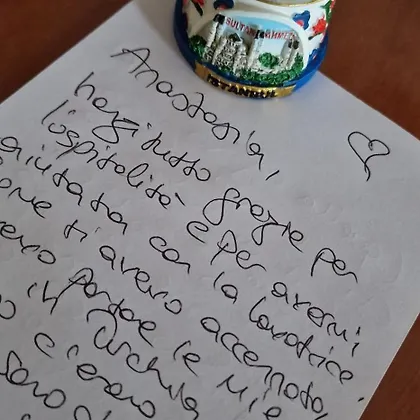 SULTANAHMET
ISTANBUL
Anastasia,
hanzitutto grazie per
l'ospitalità e per avermi
aiutata con la lavatrice.
ome ti avevo accennato,
evo portare le mie
in Turchia
o c'erano
sono